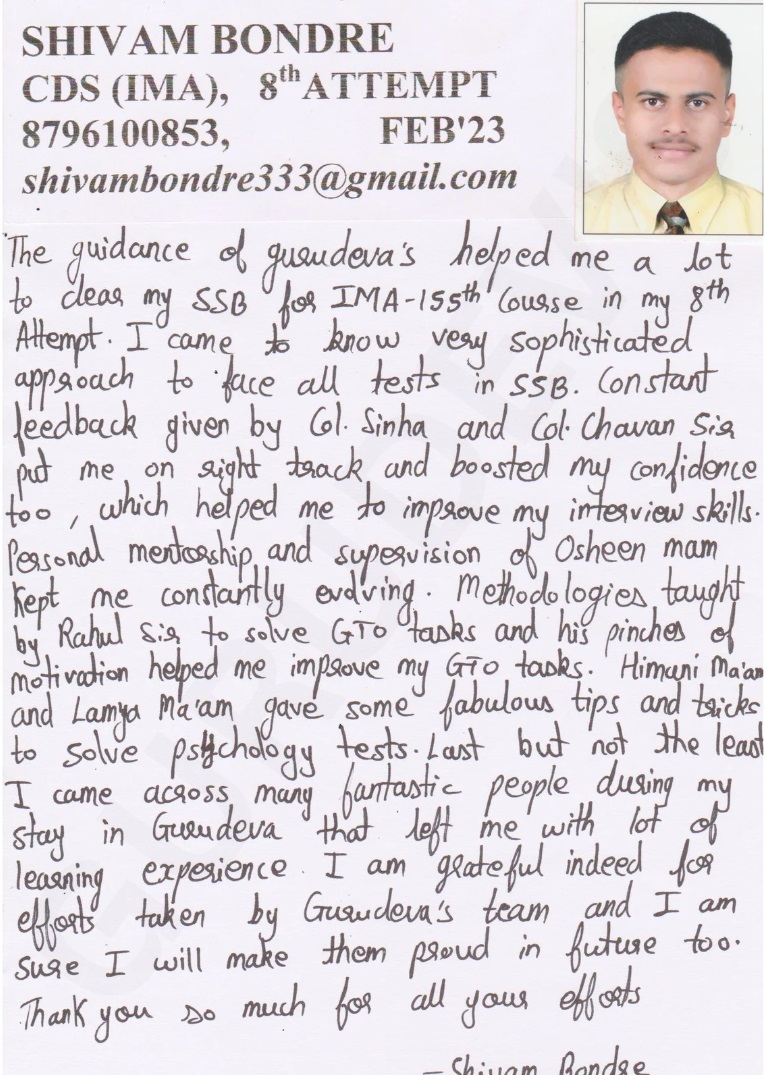 SHIVAM BONDRE
CDS (IMA), 8th ATTEMPT
8796100853, FEB'23
shivambondre333@gmail.com
The guidance of gurudeva's helped me a lot
to clear my SSB for IMA-155th Course in my 8th
Attempt. I came to know very sophisticated
approach to face all tests in SSB. Constant
feedback given by Col. Sinha and Col. Chavan Sir
put me on right track and boosted my confidence
too, which helped me to improve my interview skills.
Personal mentorship and supervision of Osheen mam
Kept me constantly evolving. Methodologies taught
by Rahul Sir to solve GTO tasks and his pinches of
motivation helped me improve my GTO tasks. Himani Ma'am
and Lamya Ma'am gave some fabulous tips and tricks
to solve psychology tests. Last but not the least
I came across many fantastic people during my
stay in Gurudeva that left me with lot of
learning experience. I am grateful indeed for
efforts taken by Gurudeva's team and I am
sure I will make them proud in future too.
Thank you so much for all your efforts
- Shivam Bondre